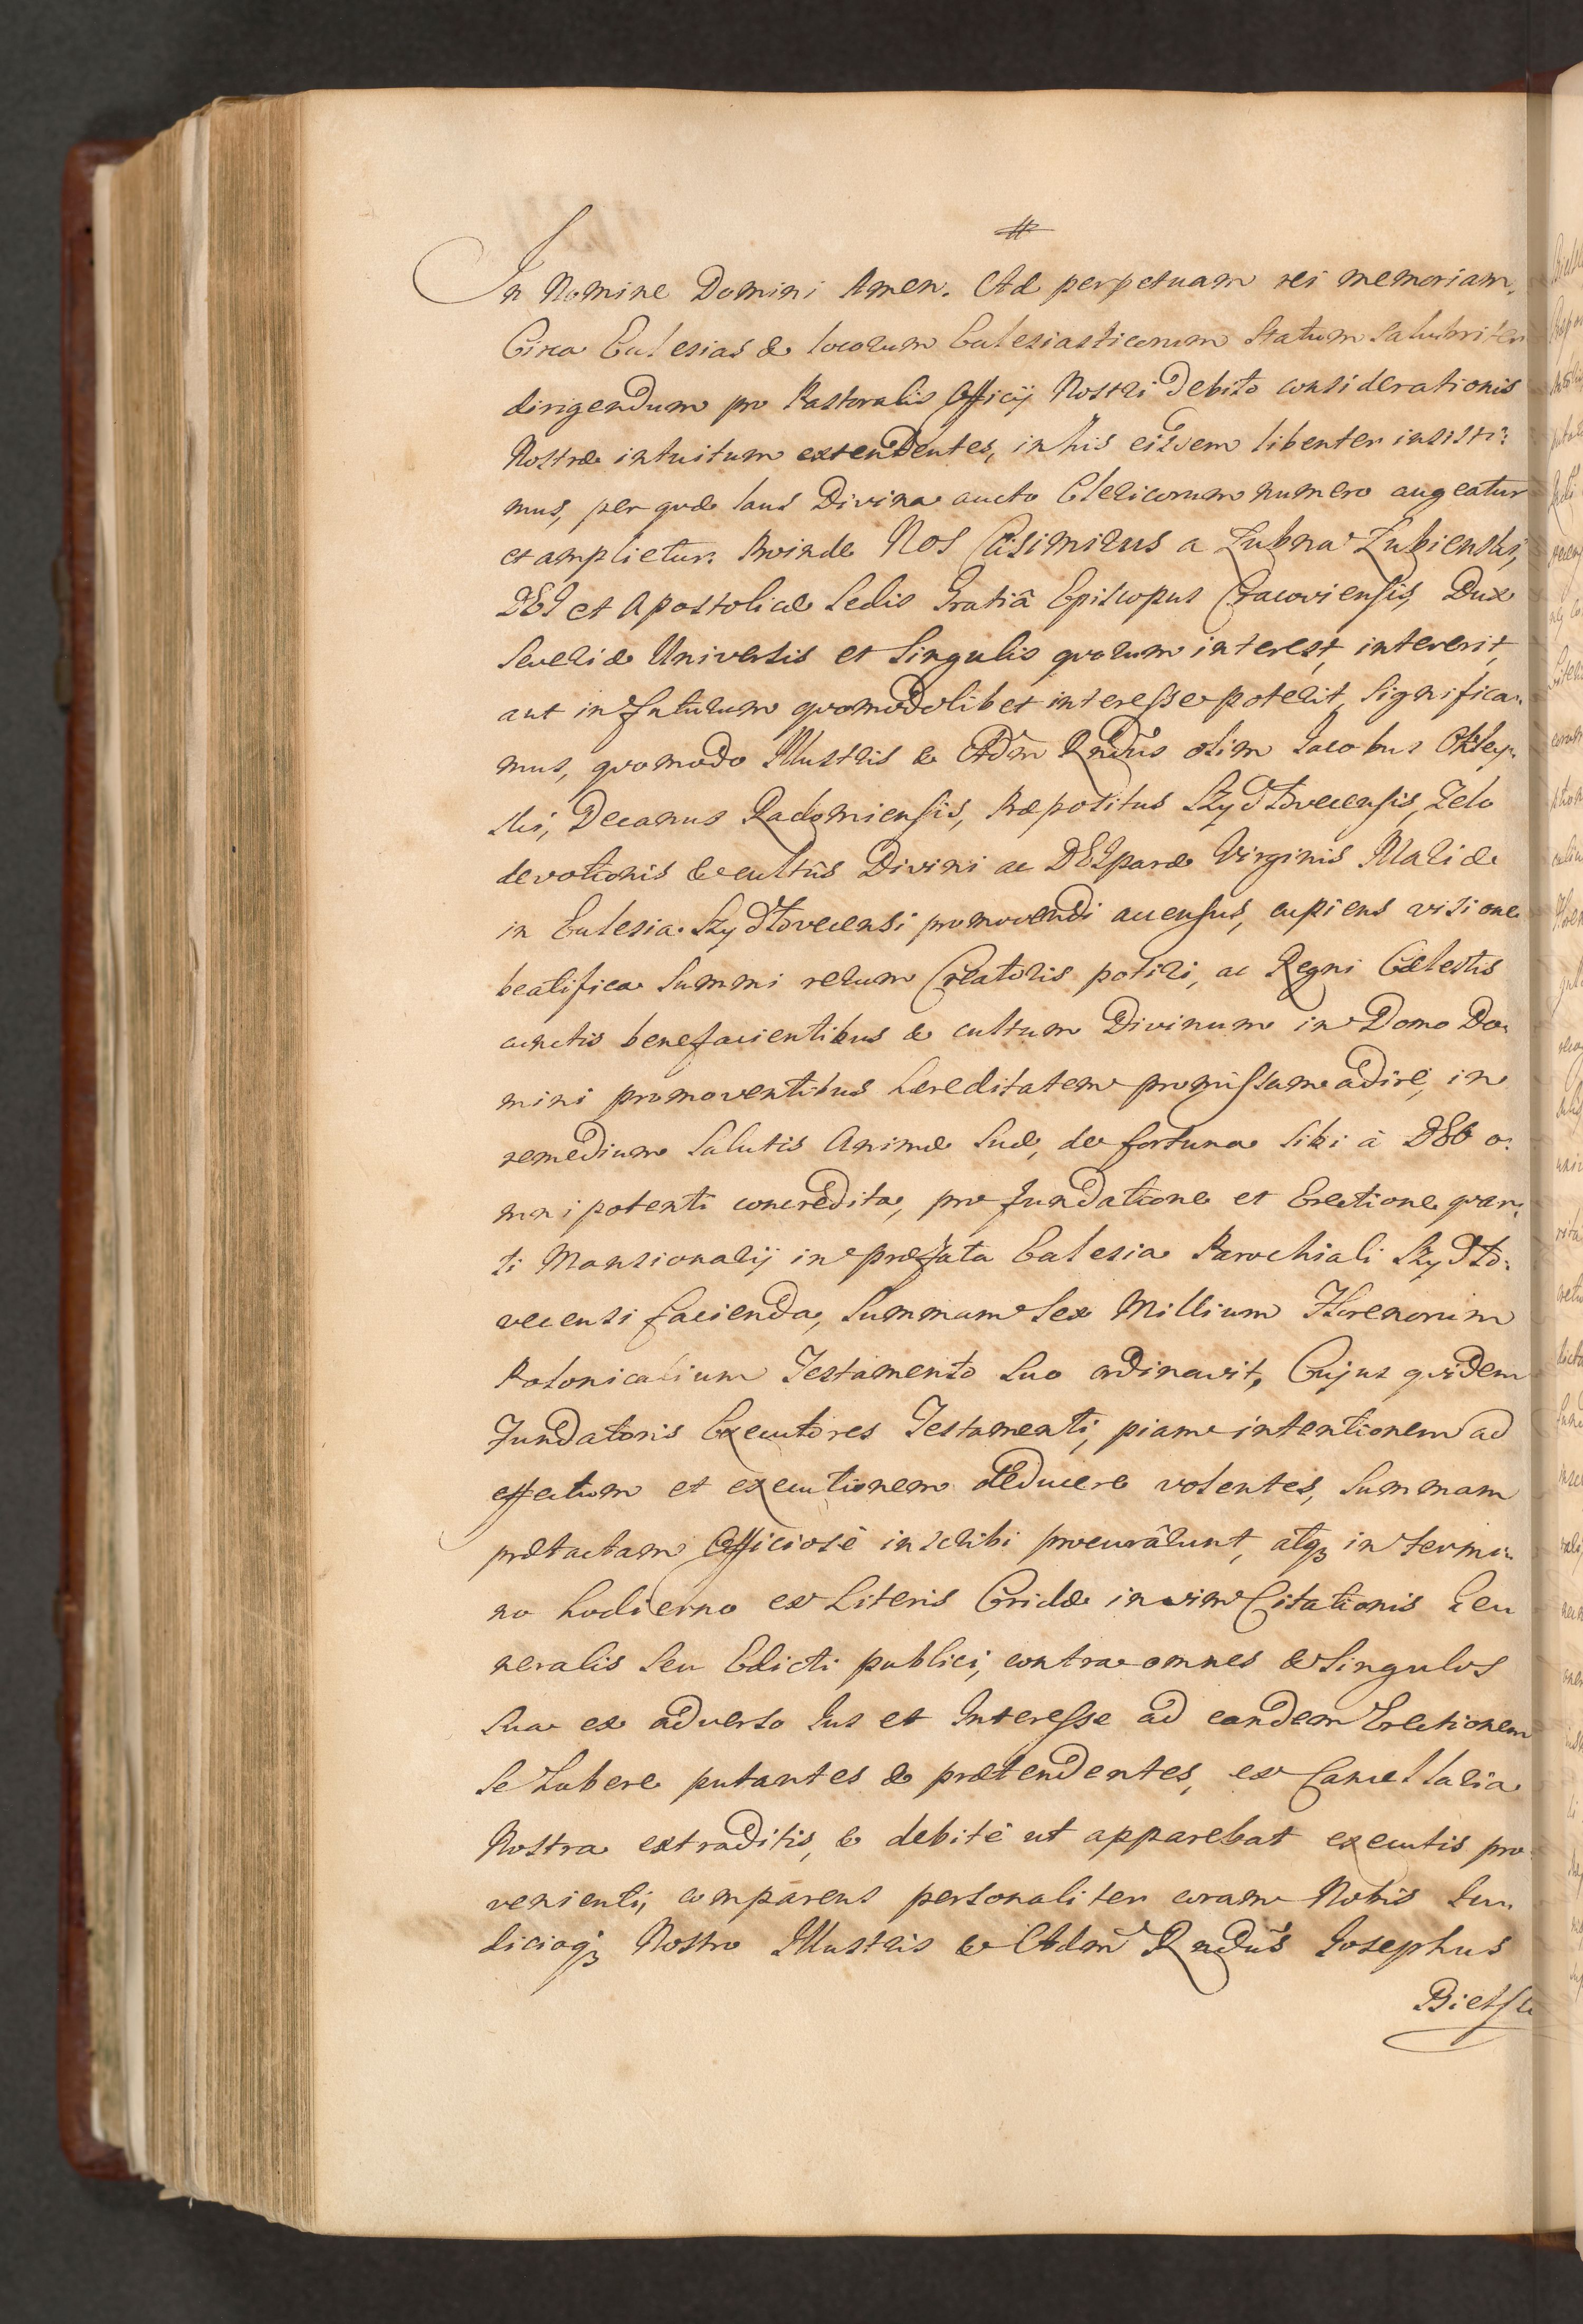 #
In Nomine Domini Amen. Ad perpetuam rei memoriam.
Circa Eclesias & locorum Eclesiasticorum Statum salubriter
dirigendum pro Pastoralis Officij Nostri debito considerationis
Nostræ intuitum extendentes, in his eisdem libenter insisti:
mus, per quæ laus Divina aucto Clericorum numero augeatur
et amplietur. Proinde Nos Casimirus a Łubna Łubienski,
DEI et Apostolicæ Sedis Gratiâ Episcopus Cracoviensis, Dux
Severiæ Universis et Singulis quorum interest, intererit,
aut in futurum quomodolibet interesse poterit, significa:
mus, quomodo Illustris & Adm̃ Rñdus olim Jacobus
ski, Decanus Radomiensis, Præpositus Szydłoveciensis, Zelo
devotionis & cultûs Divini ac DEIparæ Virginis Mariæ
in Eclesia Szydłoveciensi promovendi accensus, cupiens visione
beatifica Summi rerum Creatoris potiri, ac Regni Cælestis
cunctis benefacientibus & cultum Divinum in Domo Do:
mini promoventibus hæreditatem promissam adire, in
remedium Salutis Animæ Suæ, de fortuna Sibi à DEO o:
mnipotenti concredita, pro fundatione et Erectione quar:
ti Mansionarij in præfata Eclesia Parochiali Szydło:
veciensi facienda, Summam Sex Millium Florenorum
Polonicalium Testamento Suo ordinavit, Cujus quidem
Fundatoris Executores Testamenti, piam intentionem ad
effectum et executionem deducere volentes, Summam
prætactam Officiosè inscribi procurârunt, atq3 in termi:
no hodierno ex Literis Cridæ in vim Citationis Gen
neralis Seu Edicti publici, contra omnes & Singulos
Sua ex adverso Jus et Interesse ad eandem Erectionem
Se habere putantes & prætendentes, ex Cancellaria
Nostra extraditis, & debitè ut apparebat executis pro
venienti, comparens personaliter coram Nobis Ju:
dicioq3 Nostro Illustris & Adm̃ Rñdus Josephus